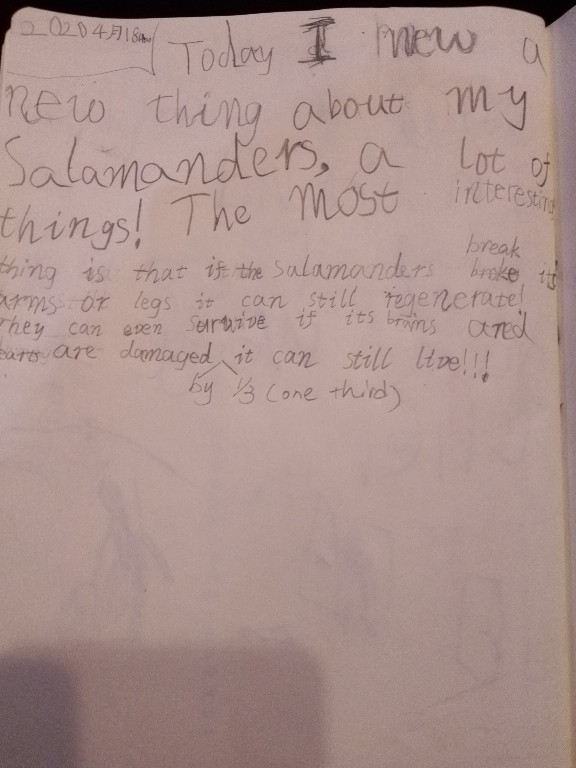 2020 4月18
Today I new a
new thing about my
Salamanders, a lot of
things! The most interesting
thing is that if the Salamanders break broke its
arms or legs it can still regenerate!
They can even survive if its brains and
earts are damaged it can still live!!!
by 1/3 (one third)